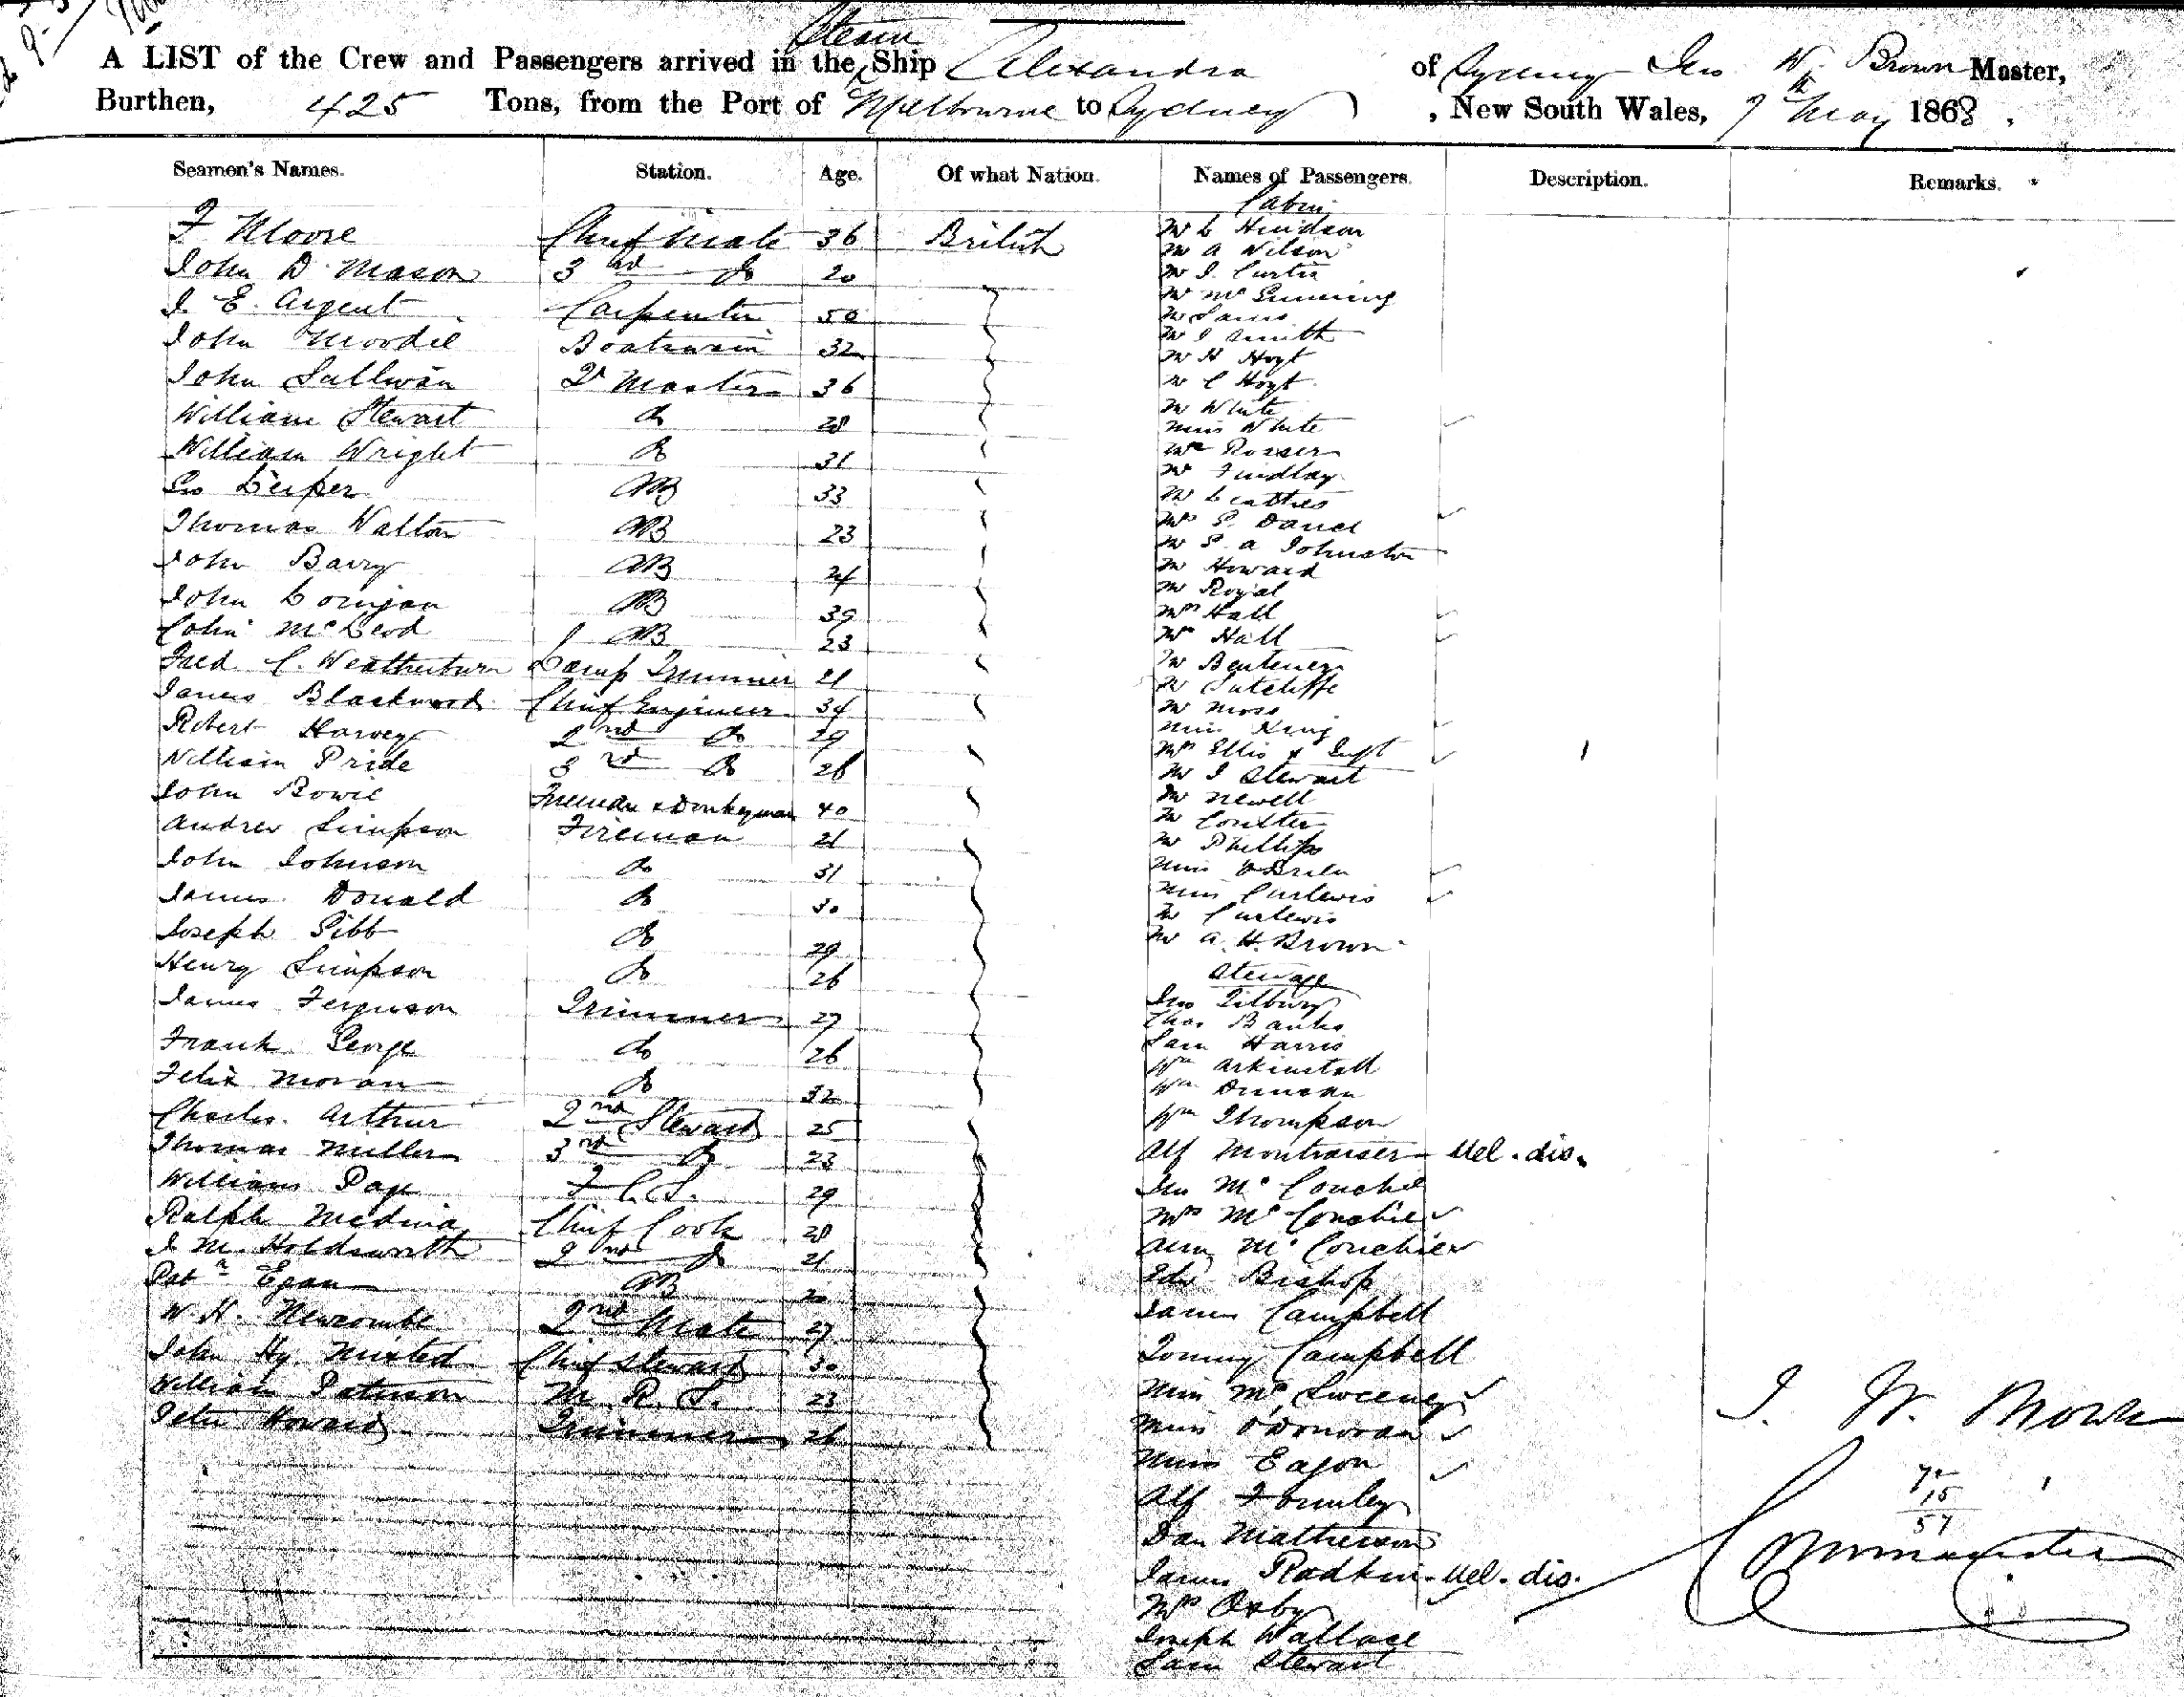 Steam
A LIST of the Crew and Passengers arrived in the Ship Alexandra of Sydney Jno W. Brown Master,
Burthen, 425 Tons, from the Port of Melbourne to Sydney, New South Wales, 7th May 1868.
Seamen's Names. Station. Age. Of what Nation. Names of Passengers. Description. Remarks.
F Moore Chief Mate 36 British
John D. Mason 3rd Do 20
J. E. Argent Carpenter 50
John Moodie Boatswain 32
John Sullivan Qr Master 36
William Stewart do 28
William Wright do 31
Geo Leiper AB 33
Thomas Walton AB 23
John Barry AB 24
John Corrigan AB 39
Colin McLeod AB 23
Fred. C. Weatherburn Lamp Trimmer 21
James Blackwood Chief Engineer 34
Robert Harvey 2nd Do 29
William Pride 3rd Do 26
John Bowie Fireman & Donkeyman 40
Andrew Simpson Fireman 21
John Johnson do 31
James Donald do 30
Joseph Gibb do 29
Henry Simpson do 26
James Ferguson Trimmer 27
Frank George do 26
Felix Moran do 32
Charles Arthur 2nd Steward 25
Thomas Miller 3rd Do 23
William Page F. C. S. 29
Ralph Medina Chief Cook 28
J. M. Holdsworth 2nd Do 21
Patk Egan AB 20
W. H. Newcombe 2nd Mate 27
John Hy. Chief Steward 30
William Paterson M. R. S. 23
Peter Howard Trimmer 26
Cabin
Mr Hewdson
Mr A Wilson
Mr J. Curtis
Mr
Mr
Mr J Smith
Mr H Hoyt
Mr C Hoyt
Mr White
Miss White
Mr Rosser
Mr Findlay
Mr
Mrs S. Daniel
Mr S. A Johnston
Mr Howard
Mr Royal
Mrs Hall
Mr Hall
Mr
Mr Sutcliffe
Mr Moss
Miss King
Mrs Ellis & Inft
Mr J Stewart
Mr Newell
Mr Coulter
Mr Phillips
Miss O'Brien
Miss Curlewis
Mr Curlewis
Mr A. H. Brown
Steerage
Jno Tilbury
Thos Banks
Sam Harris
Wm Arkinstall
Wm Duncan
Wm Thompson
Alf Montraiser Mel. dis.
Jno McConchie
Mrs McConchie
Ann McConchie
Edw Bishop
James Campbell
Tommy Campbell
Miss McSweeney
Miss O'Donovan
Miss Eagon
Alf Townley
Dan Mathieson
James Rodkin Mel. dis.
Mrs Oxby
Joseph Wallace
Sam Stewart
J. W. Brown
42
15
57
Commander